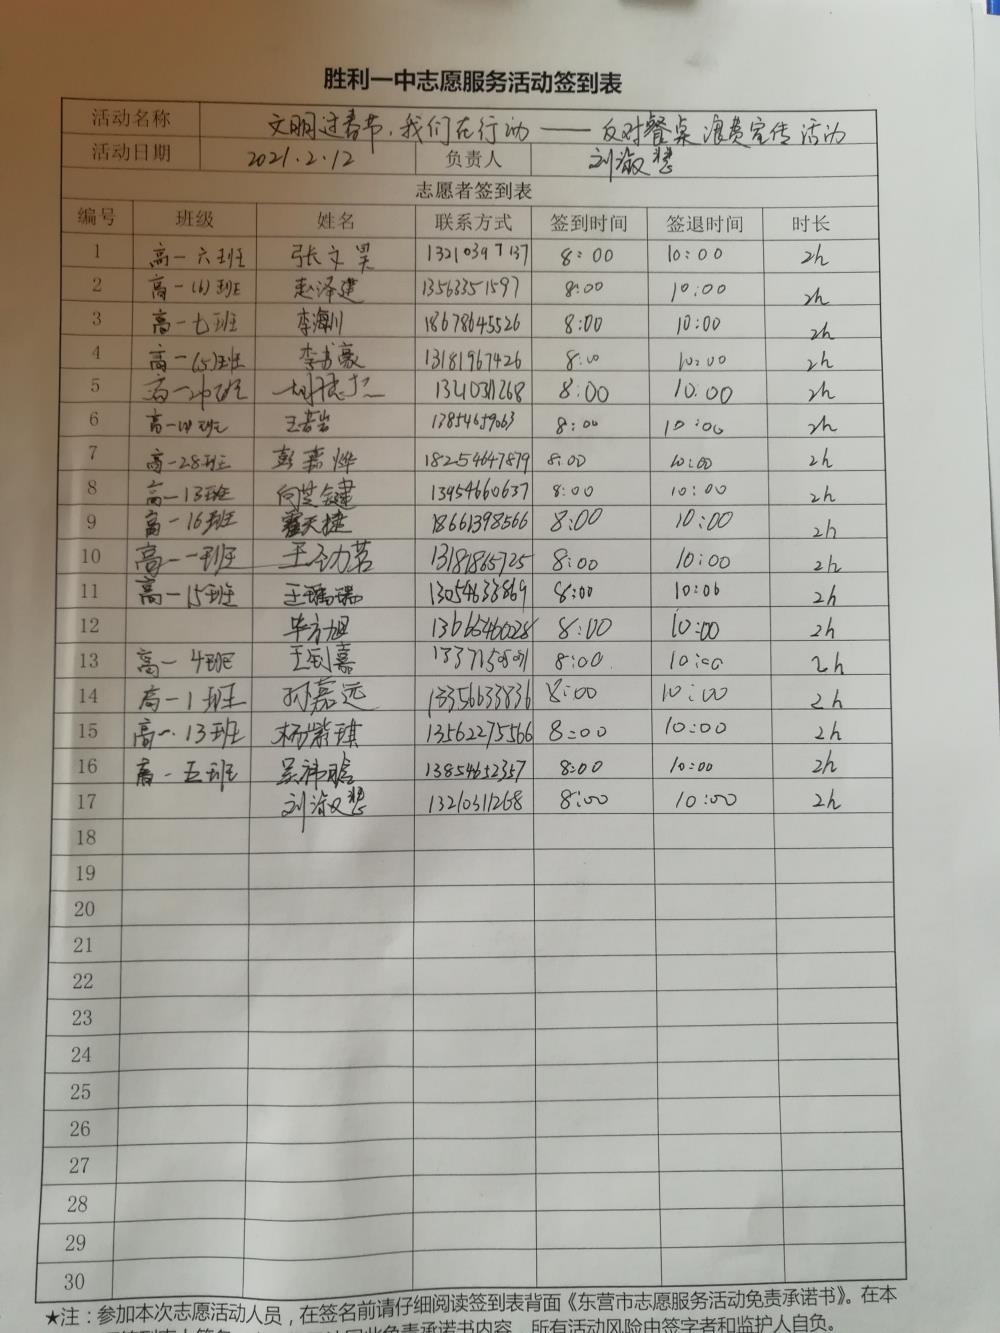 胜利一中志愿服务活动签到表
活动名称 文明过春节，我们在行动——反对餐桌浪费宣传活动
活动日期 2021.2.12 负责人 刘淑慧
志愿者签到表
编号 班级 姓名 联系方式 签到时间 签退时间 时长
1 高一六班 张文昊 13210397137 8:00 10:00 2h
2 高一(6)班 赵泽建 13563351597 8:00 10:00 2h
3 高一七班 李海川 18678645526 8:00 10:00 2h
4 高一(5)班 李书豪 13181967426 8:00 10:00 2h
5 高一 班 8:00 10:00 2h
6 高一 班 王若岩 13854659063 8:00 10:00 2h
7 高一28班 彭嘉烨 18254647879 8:00 10:00 2h
8 高一13班 向芝健 13954660637 8:00 10:00 2h
9 高一16班 霍天捷 18661398566 8:00 10:00 2h
10 高一一班 13181865725 8:00 10:00 2h
11 高一15班 王瑞瑞 13054633869 8:00 10:00 2h
12 毕方旭 8:00 10:00 2h
13 高一4班 王钊嘉 8:00 10:00 2h
14 高一1班 孙嘉远 13356633836 8:00 10:00 2h
15 高一13班 杨紫琪 13562275566 8:00 10:00 2h
16 高一五班 吴祎晗 13854652357 8:00 10:00 2h
17 刘淑慧 13210311268 8:00 10:00 2h
18
19
20
21
22
23
24
25
26
27
28
29
30
★注：参加本次志愿活动人员，在签名前请仔细阅读签到表背面《东营市志愿服务活动免责承诺书》。在本
免责承诺书内容，所有活动风险由签字者和监护人自负。